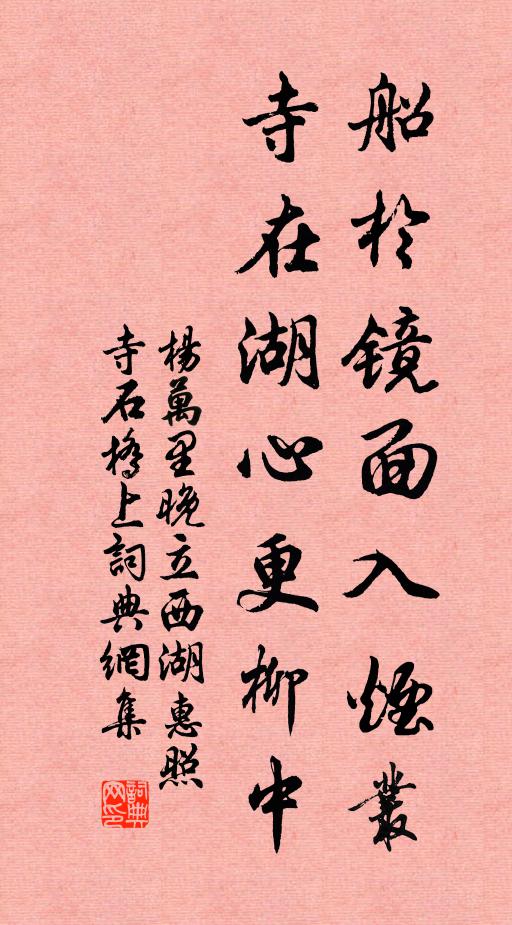 船於镜面入煙叢
寺在湖心更柳中
楊萬里晚立西湖惠照
寺石橋上詞典網集
詞典网印